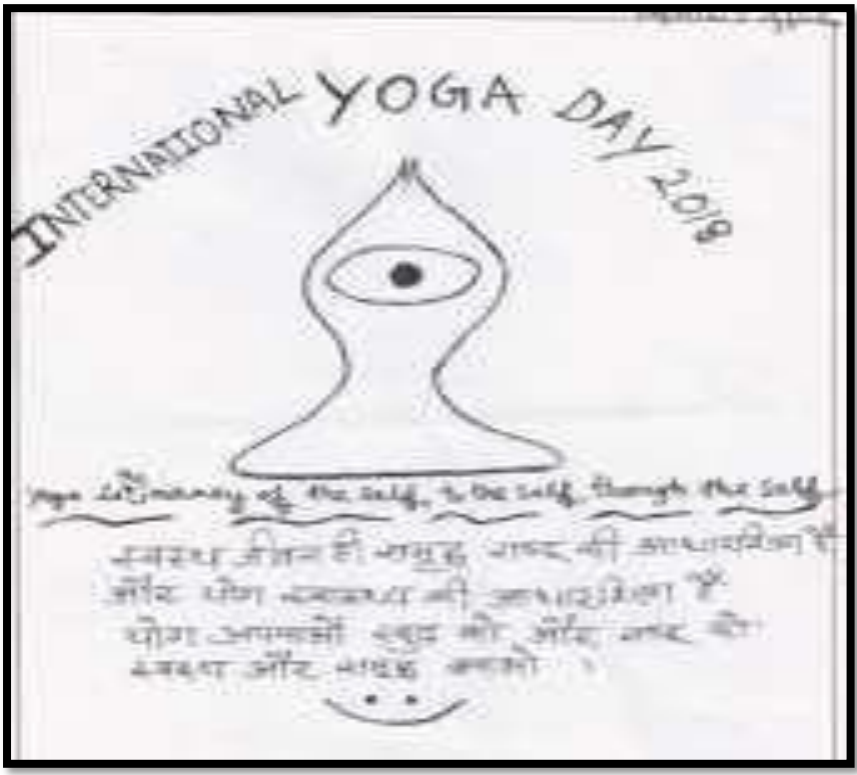 INTERNATIONAL YOGA DAY 2018
Yoga is the journey of the self, to the self, through the self
स्वस्थ जीवन ही समृद्ध राष्ट्र की आधारशिला है
और योग स्वास्थ्य की आधारशिला है
योग अपनाओ खुद को और राष्ट्र को
स्वस्थ और समृद्ध बनाओ ।